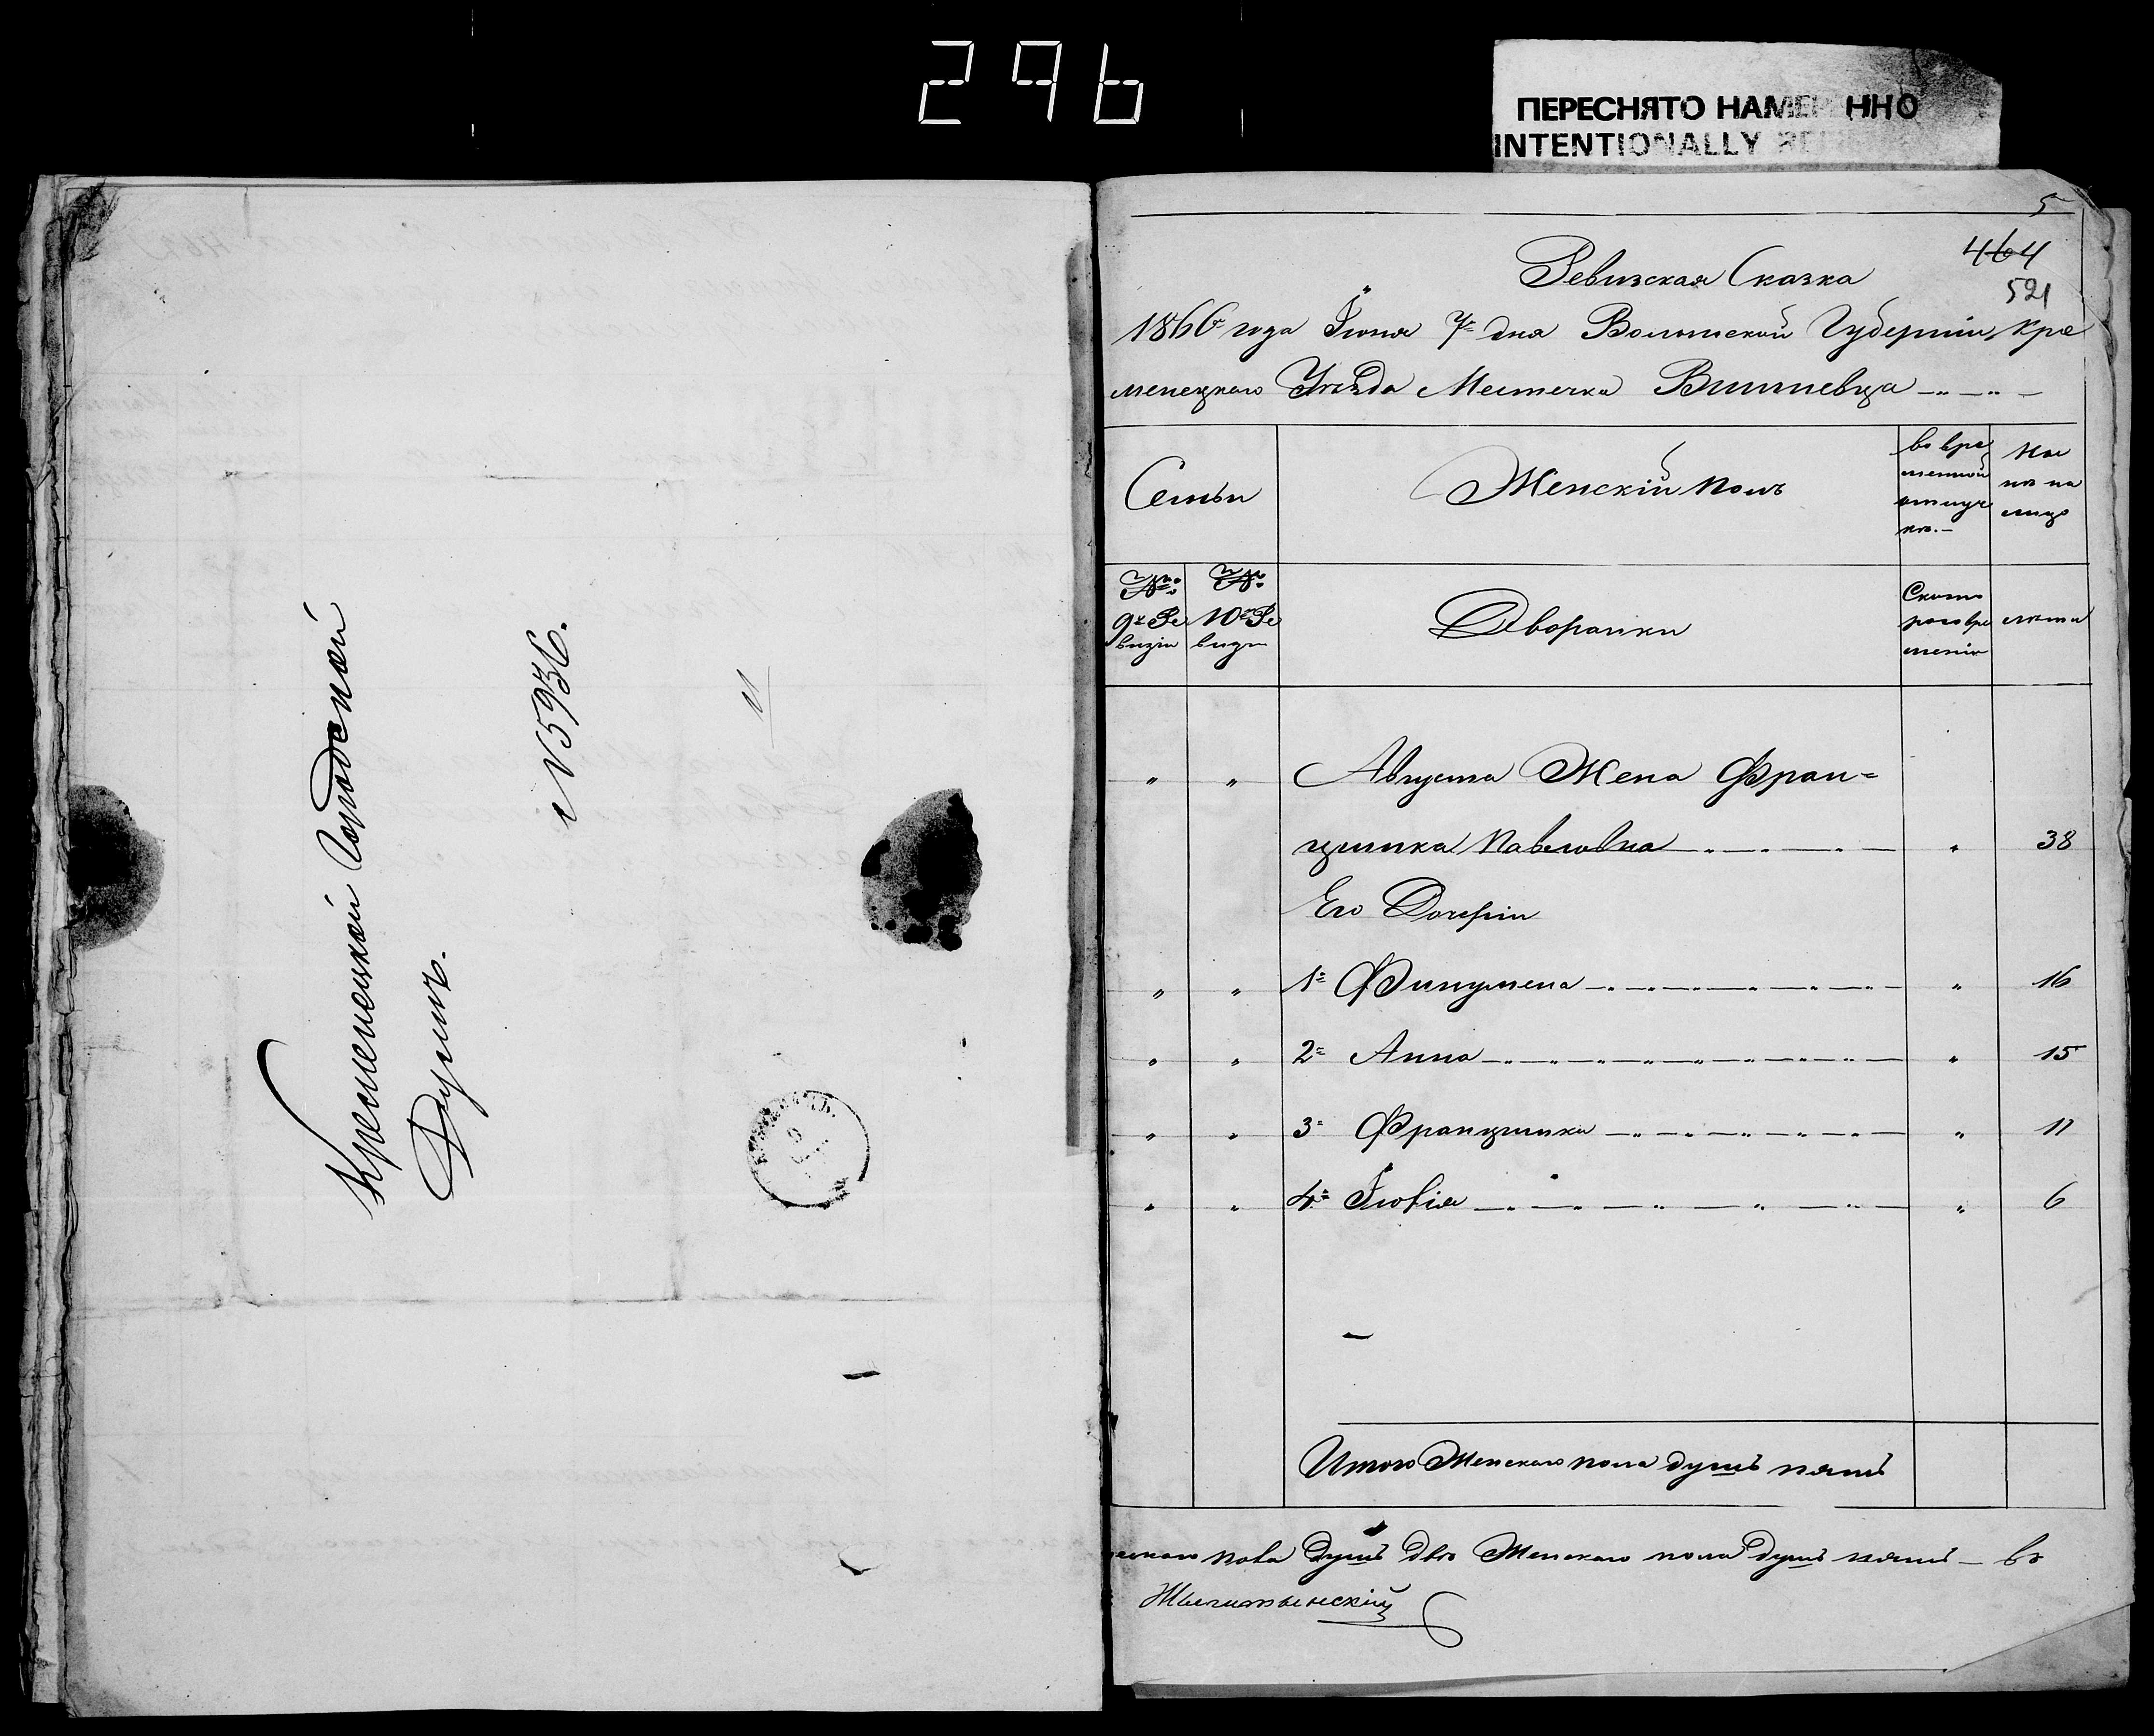 296
ПЕРЕСНЯТО НАМЕРЕННО
INTENTIONALLY RE
Кременецкой Городской
Думѣ.
N 5936.
5
464
521
Ревизская Сказка
1860 года Іюня 7 дня Волынской Губерніи, Кре
менецкаго Уѣзда Местечка Вишневца
Семьи
Женскій полъ
во вре
менной
отлуч
кѣ.
Ны
нѣ на
лицо
№
9й Ре
визіи
№
10й Ре
визіи
Дворянки
Съ кото
раго вре
мени
лѣта
Августа Жена Фран=
цишка Павловна 38
Его Дочери
1я Филумена 16
2я Анна 15
3я Францишка 11
4я Юлія 6
Итого Женскаго пола душъ пять
пола душъ двѣ Женскаго пола душъ пять – во